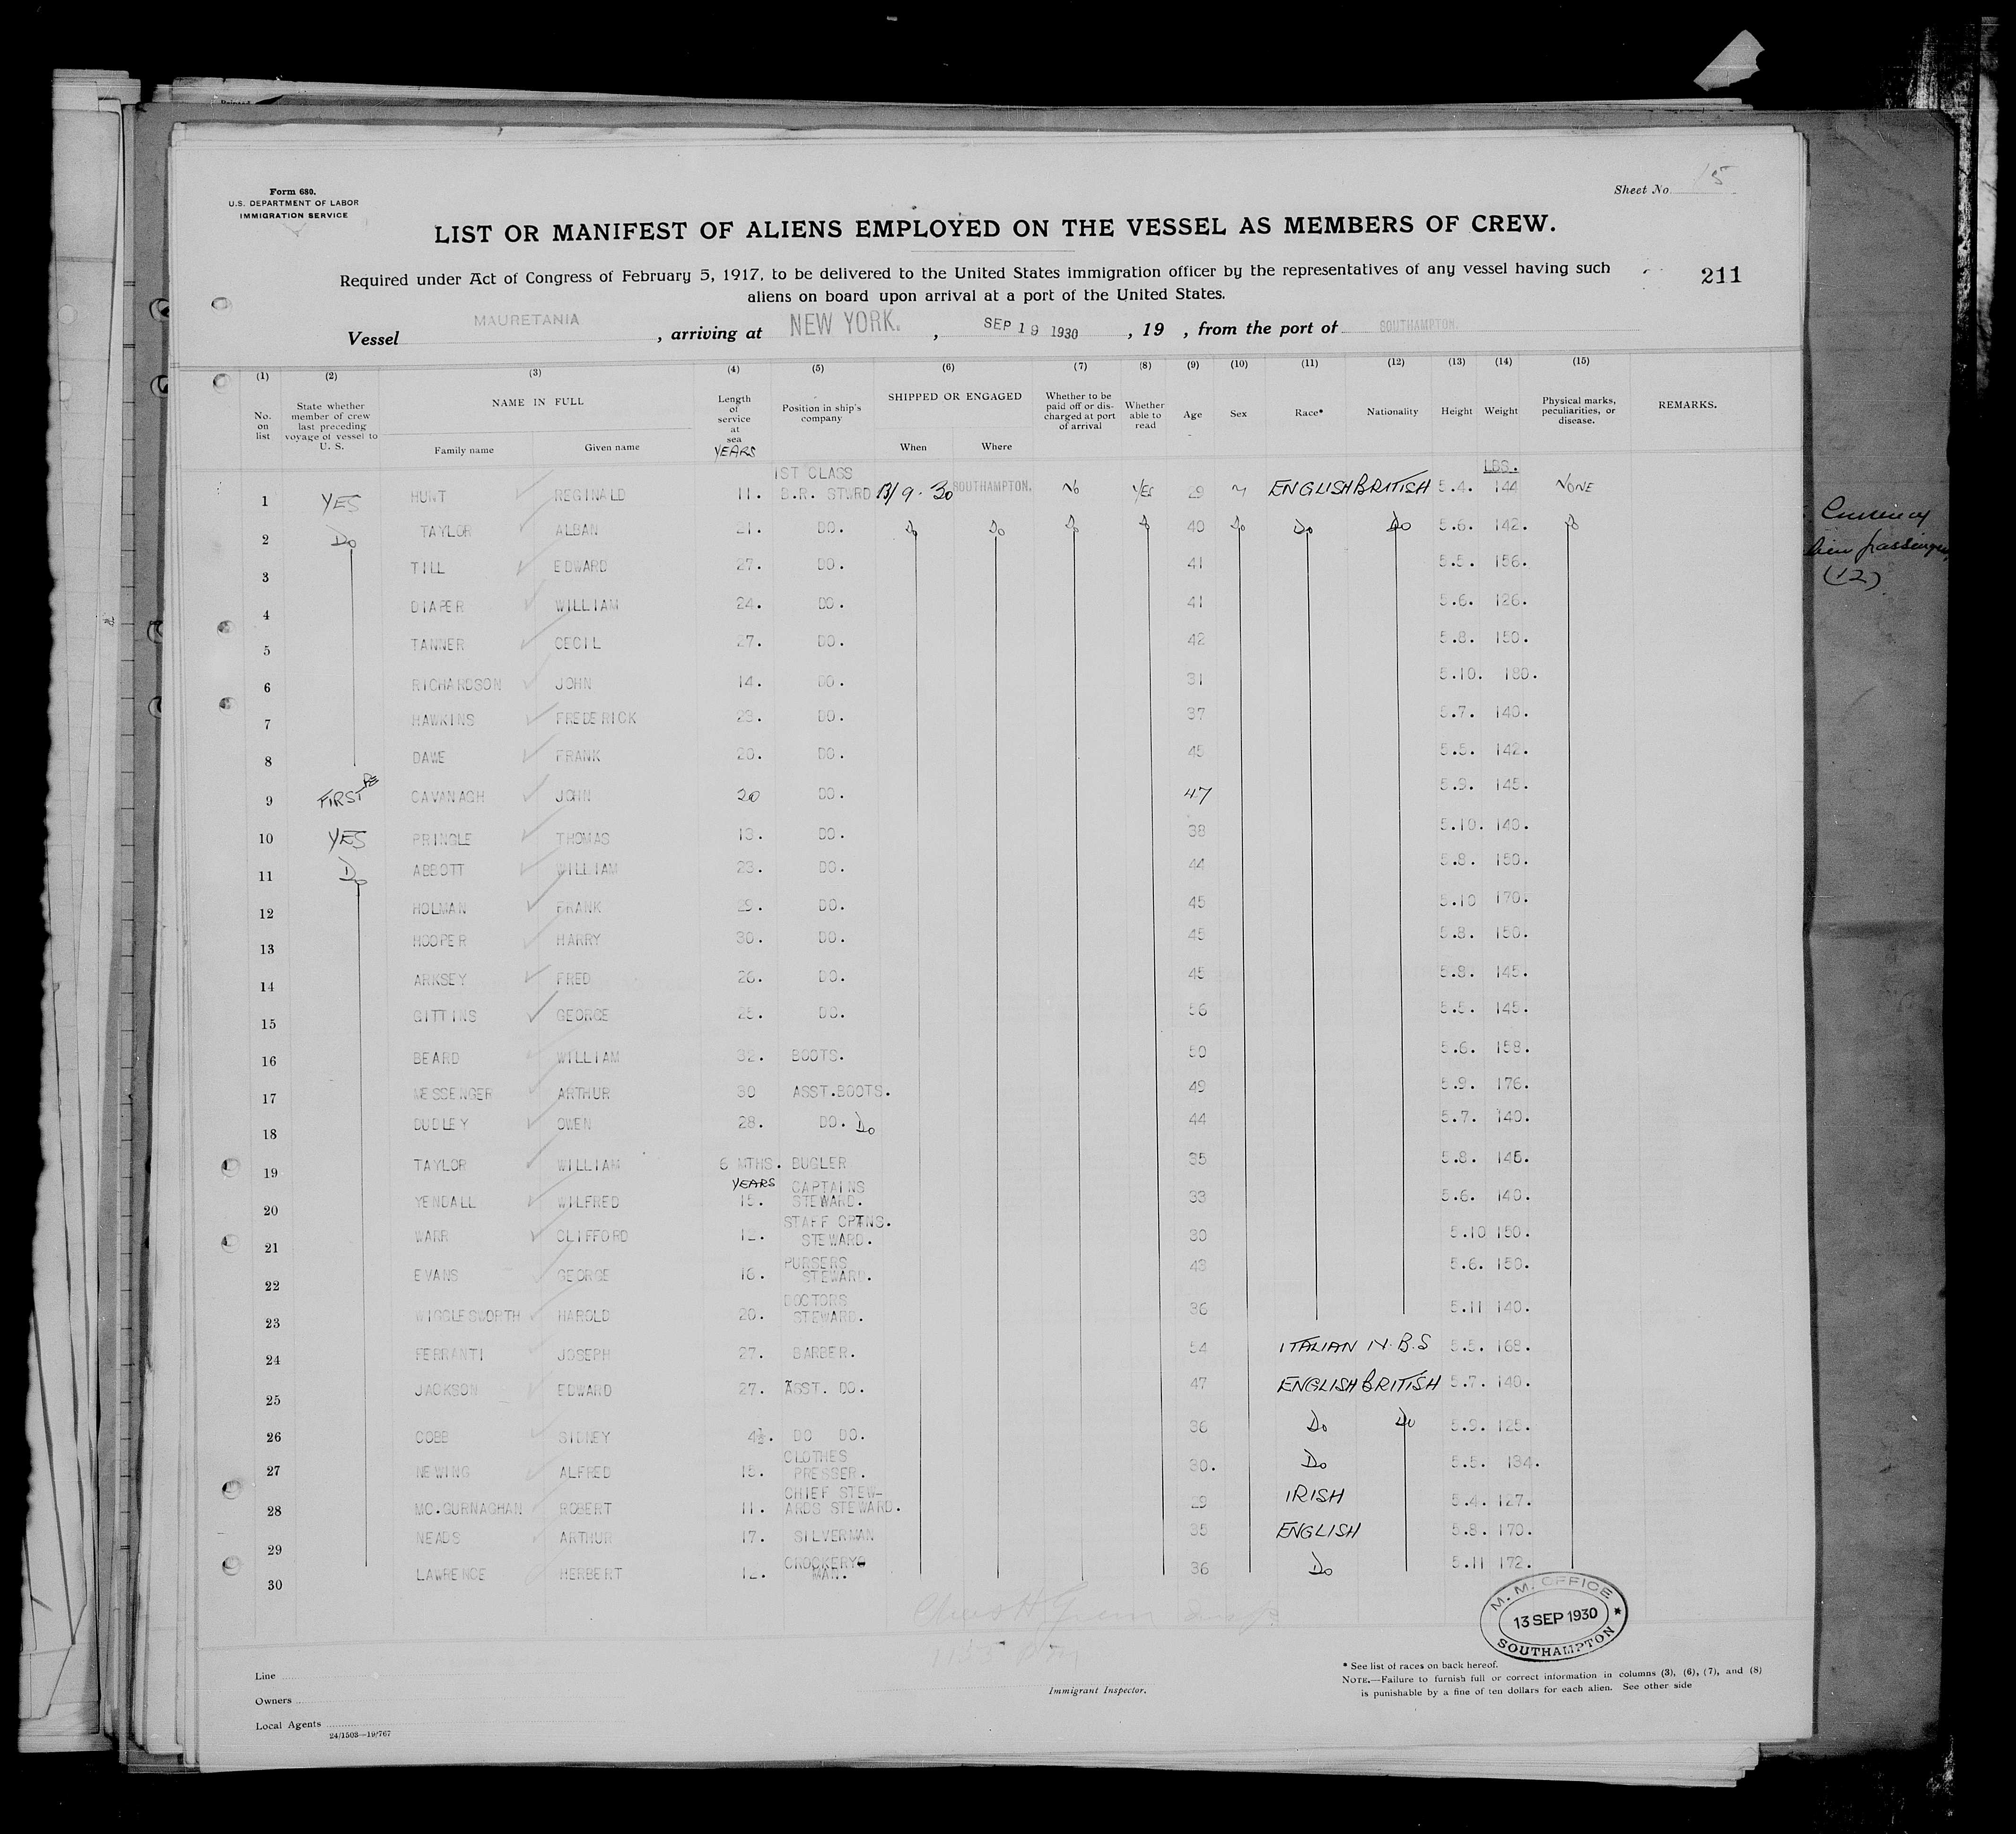 Form 680.
U.S. DEPARTMENT OF LABOR
IMMIGRATION SERVICE
Sheet No 15
LIST OR MANIFEST OF ALIENS EMPLOYED ON THE VESSEL AS MEMBERS OF CREW.
Required under Act of Congress of February 5, 1917, to be delivered to the United States immigration officer by the representatives of any vessel having such
aliens on board upon arrival at a port of the United States.
211
Vessel MAURETANIA , arriving at NEW YORK. , SEP 19 1930 , 19 , from the port of SOUTHAMPTON.
(1) (2) (3) (4) (5) (6) (7) (8) (9) (10) (11) (12) (13) (14) (15)
No. on list State whether member of crew last preceding voyage of vessel to U. S. NAME IN FULL Family name Given name Length of service at sea YEARS Position in ship's company SHIPPED OR ENGAGED When Where Whether to be paid off or discharged at port of arrival Whether able to read Age Sex Race* Nationality Height Weight Physical marks, peculiarities, or disease. REMARKS.
1ST CLASS LBS.
1 YES HUNT REGINALD 11. B.R. STWRD 13/9.30 SOUTHAMPTON. No YES 29 M ENGLISH BRITISH 5.4. 144 NONE
2 Do TAYLOR ALBAN 21. DO. Do Do Do Do 40 Do Do Do 5.6. 142. Do
3 TILL EDWARD 27. DO. 41 5.5. 156.
4 DIAPER WILLIAM 24. DO. 41 5.6. 126.
5 TANNER CECIL 27. DO. 42 5.8. 150.
6 RICHARDSON JOHN 14. DO. 31 5.10. 180.
7 HAWKINS FREDERICK 23. DO. 37 5.7. 140.
8 DAWE FRANK 20. DO. 45 5.5. 142.
9 FIRST RE CAVANAGH JOHN 20 DO. 47 5.9. 145.
10 YES PRINGLE THOMAS 13. DO. 38 5.10. 140.
11 Do ABBOTT WILLIAM 23. DO. 44 5.8. 150.
12 HOLMAN FRANK 29. DO. 45 5.10 170.
13 HOOPER HARRY 30. DO. 45 5.8. 150.
14 ARKSEY FRED 26. DO. 45 5.8. 145.
15 GITTINS GEORGE 25. DO. 56 5.5. 145.
16 BEARD WILLIAM 32. BOOTS. 50 5.6. 158.
17 MESSENGER ARTHUR 30 ASST.BOOTS. 49 5.9. 176.
18 DUDLEY OWEN 28. DO. Do 44 5.7. 140.
19 TAYLOR WILLIAM 6 MTHS. BUGLER 35 5.8. 145.
YEARS CAPTAINS
20 YENDALL WILFRED 15. STEWARD. 33 5.6. 140.
STAFF CPTNS.
21 WARR CLIFFORD 12. STEWARD. 30 5.10 150.
PURSERS
22 EVANS GEORGE 16. STEWARD. 43 5.6. 150.
DOCTORS
23 WIGGLESWORTH HAROLD 20. STEWARD. 36 5.11 140.
24 FERRANTI JOSEPH 27. BARBER. 54 ITALIAN N.B.S 5.5. 168.
25 JACKSON EDWARD 27. ASST. DO. 47 ENGLISH BRITISH 5.7. 140.
26 COBB SIDNEY 4½. DO DO. 36 Do Do 5.9. 125.
CLOTHES
27 NEWING ALFRED 15. PRESSER. 30. Do 5.5. 134.
CHIEF STEW-
28 MC.GURNAGHAN ROBERT 11. ARDS STEWARD. 29 IRISH 5.4. 127.
29 NEADS ARTHUR 17. SILVERMAN 35 ENGLISH 5.8. 170.
CROCKERY
30 LAWRENCE HERBERT 12. MAN. 36 Do 5.11 172.
Currency
passengers
(12)
M. M. OFFICE
13 SEP 1930
SOUTHAMPTON
Line
Owners
Local Agents
24/1503—19/767
Immigrant Inspector.
* See list of races on back hereof.
NOTE.—Failure to furnish full or correct information in columns (3), (6), (7), and (8)
is punishable by a fine of ten dollars for each alien. See other side